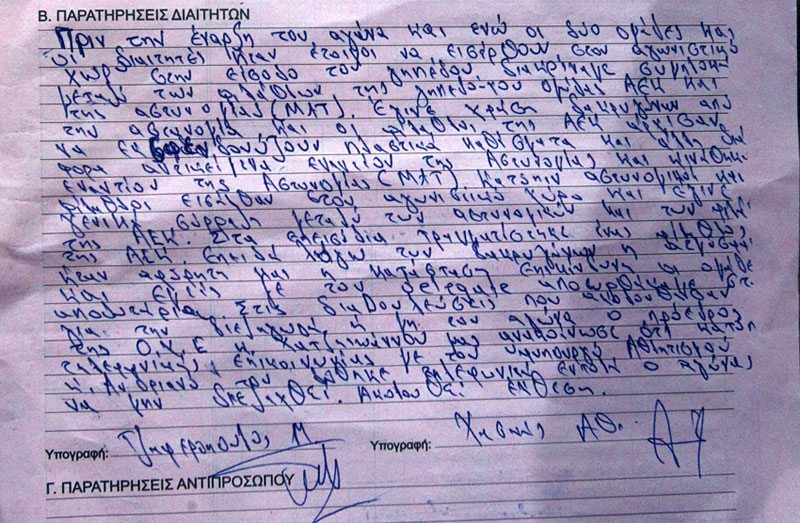 Β. ΠΑΡΑΤΗΡΗΣΕΙΣ ΔΙΑΙΤΗΤΩΝ
Πριν την έναρξη του αγώνα και ενώ οι δυο ομάδες και
οι διαιτητές ήταν έτοιμοι να εισέρθουν στον αγωνιστικό
χώρο στην είσοδο του γηπέδου διακρίναμε
μεταξύ των φιλάθλων της ομάδας ΑΕΚ και
της αστυνομίας (ΜΑΤ). Έγινε χρήση δακρυγόνων από
την αστυνομία και οι φίλαθλοι της ΑΕΚ άρχισαν
να πλαστικά καθίσματα και άλλα διά
φορα αντικείμενα εναντίον της Αστυνομίας και κινήθηκαν
εναντίον της Αστυνομίας (ΜΑΤ). Κατόπιν αστυνομικοί και
φίλαθλοι εισήλθαν στον αγωνιστικό χώρο και έγινε
γενική σύρραξη μεταξύ των αστυνομικών και των
της ΑΕΚ. Στα επεισόδια τραυματίστηκε ένας φίλαθλος
της ΑΕΚ. Επειδή λόγω των δακρυγόνων η
ήταν αφόρητη και η κατάσταση επικίνδυνη οι ομάδες
και εμείς με τον αποσυρθήκαμε στ
αποδυτήρια. Στις διαβουλεύσεις που ακολούθησαν
για την διεξαγωγή ή μη του αγώνα ο πρόεδρος
της Ο.Χ.Ε κ. Χατζηιωάννου μας ανακοίνωσε ότι κατόπιν
τηλεφωνικής επικοινωνίας με τον υφυπουργό Αθλητισμού
κ. Ανδριανό του δόθηκε τηλεφωνική εντολή ο αγώνας
να μην διεξαχθεί. Ακολουθεί έκθεση.
Υπογραφή: Μ. Υπογραφή: Αθ.
Γ. ΠΑΡΑΤΗΡΗΣΕΙΣ ΑΝΤΙΠΡΟΣΩΠΟΥ